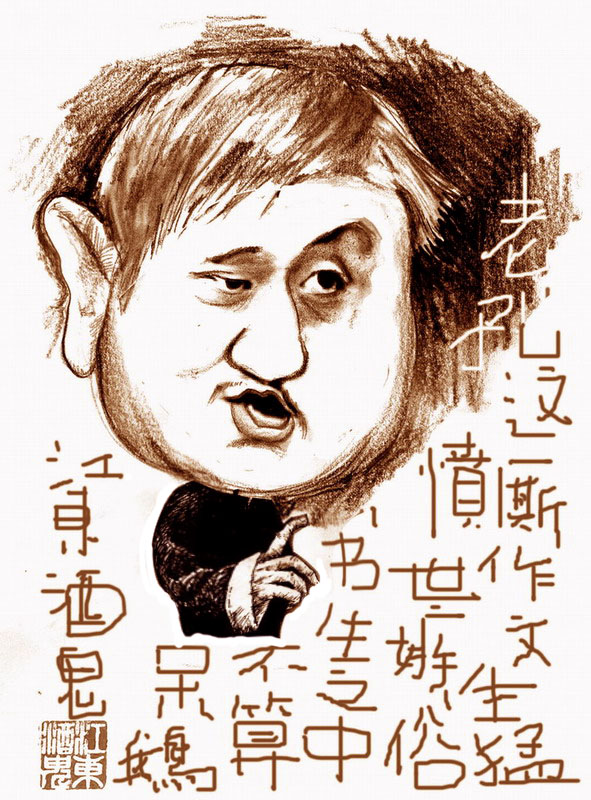 老孔
这厮作文生猛
憤世嫉俗
书生之中
不算
呆鵝
江東酒鬼
江東酒鬼